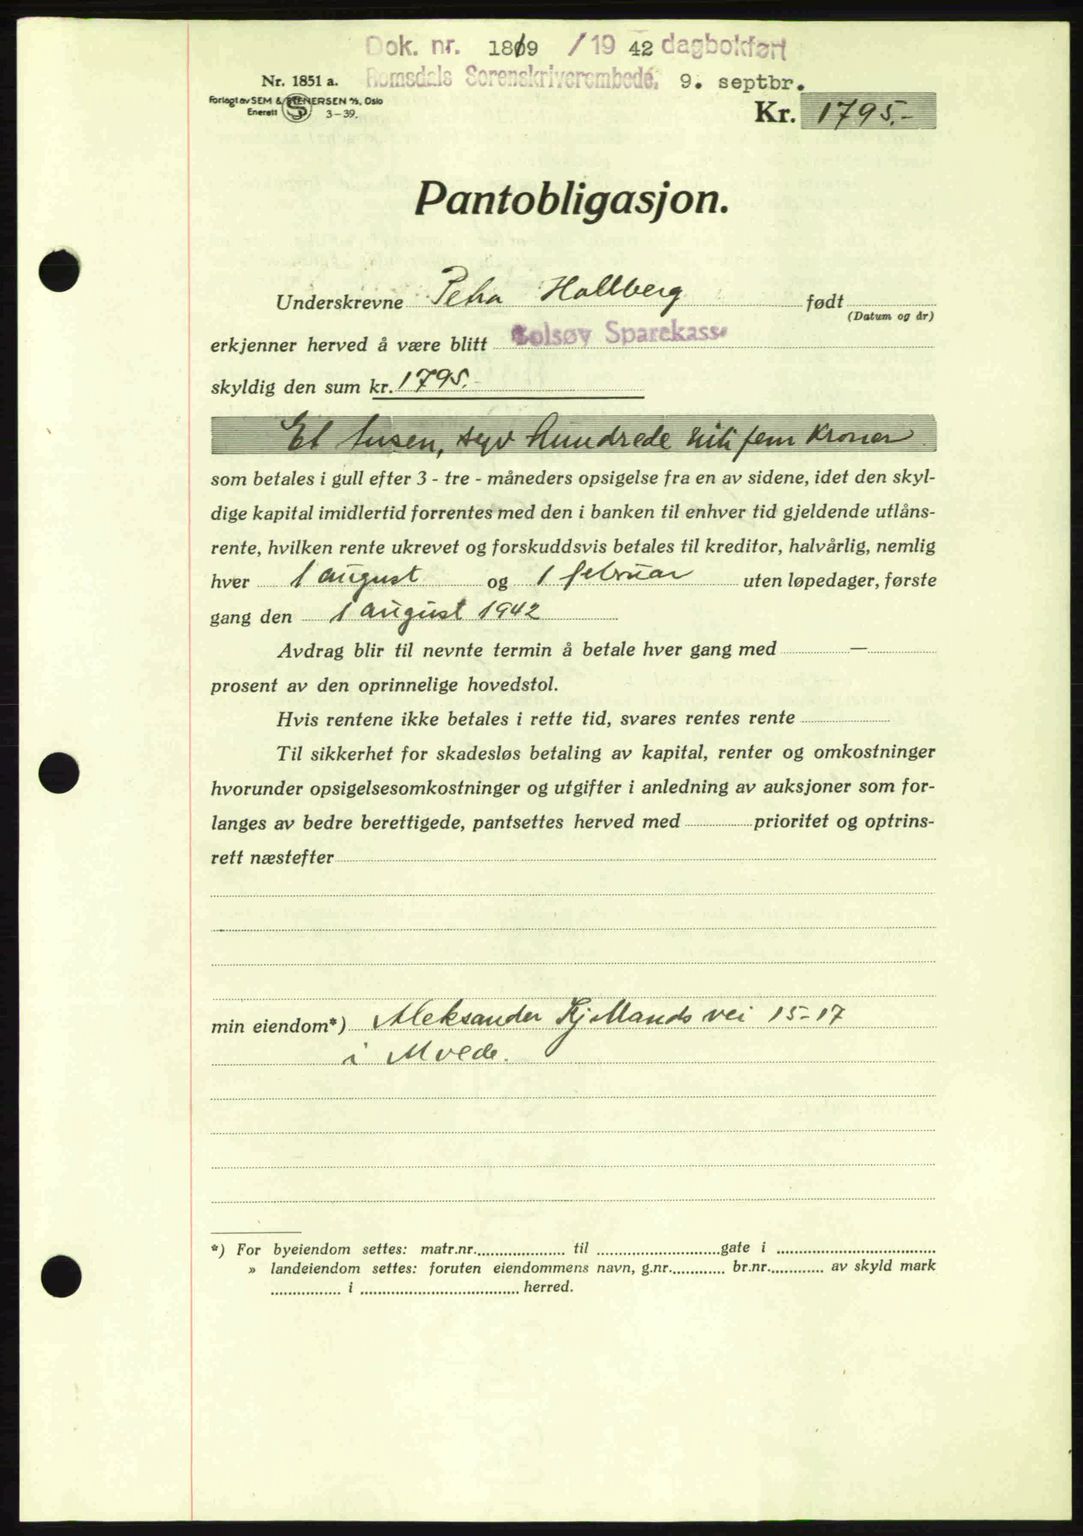 Dok. nr. 1819 /19 42 dagbokført
Nr. 1851 a. Romsdals Sorenskriverembede. 9. septbr.
Forlagt av SEM & STENERSEN A/S, Oslo
Enerett 3-39.
Kr. 1795.-
Pantobligasjon.
Underskrevne Petra Hallberg født
(Datum og år)
erkjenner herved å være blitt Bolsøy Sparekasse
skyldig den sum kr. 1795.-
Et tusen, syv hundrede niti fem kroner
som betales i gull efter 3 - tre - måneders opsigelse fra en av sidene, idet den skyl-
dige kapital imidlertid forrentes med den i banken til enhver tid gjeldende utlåns-
rente, hvilken rente ukrevet og forskuddsvis betales til kreditor, halvårlig, nemlig
hver 1 august og 1 februar uten løpedager, første
gang den 1 august 1942
Avdrag blir til nevnte termin å betale hver gang med —
prosent av den oprinnelige hovedstol.
Hvis rentene ikke betales i rette tid, svares rentes rente
Til sikkerhet for skadesløs betaling av kapital, renter og omkostninger
hvorunder opsigelsesomkostninger og utgifter i anledning av auksjoner som for-
langes av bedre berettigede, pantsettes herved med prioritet og optrins-
rett næstefter
min eiendom*) Aleksander Kjellands vei 15-17
i Molde.
*) For byeiendom settes: matr.nr. til gate i
» landeiendom settes: foruten eiendommens navn, g.nr. br.nr. av skyld mark
i herred.